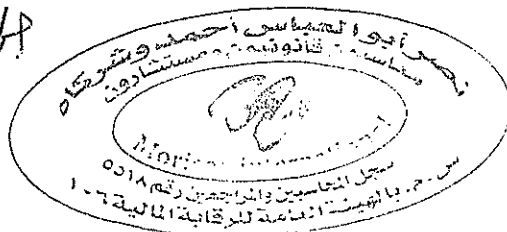 نصر أبو العباس أحمد وشركاه
محاسبون قانونيون ومستشارون
Morison International
سجل المحاسبين والمراجعين رقم ٥٥١٨
س.م. بالهيئة العامة للرقابة المالية ١٠٦